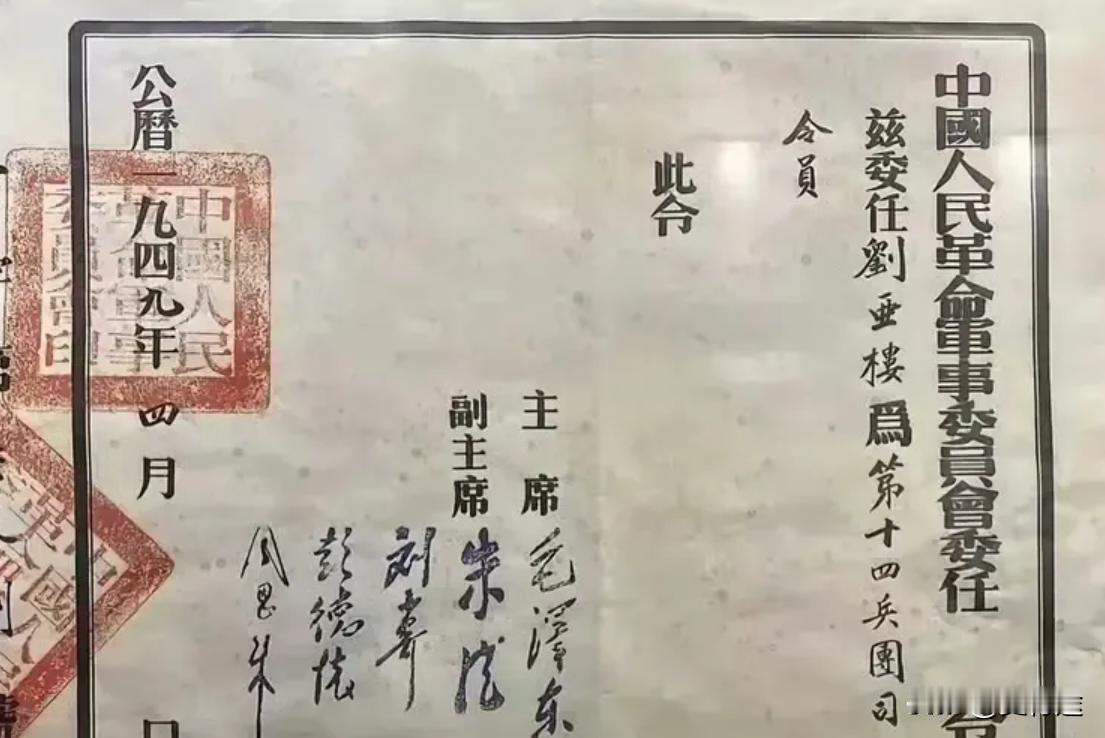 中國人民革命軍事委員會委任令
茲委任劉亚樓爲第十四兵團司
令員
此令
主席 毛澤东
副主席 朱德
刘少奇
彭德懷
周恩来
公曆一九四九年四月 日
中國人民
革命軍事
委員會印